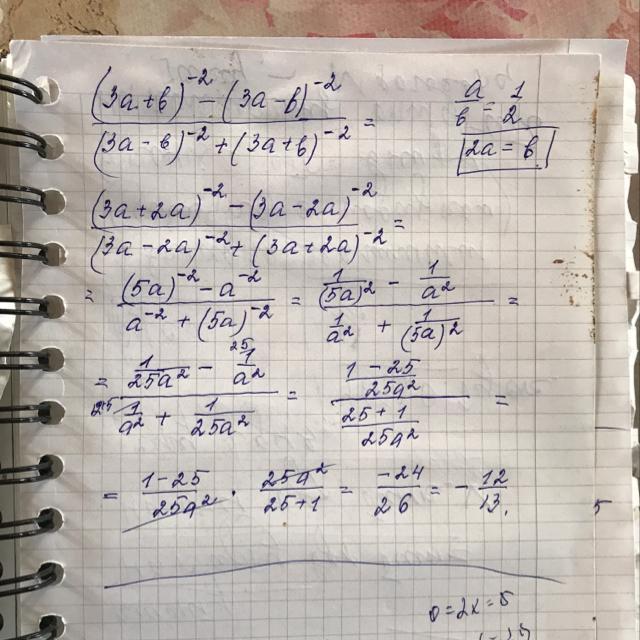 ((3a+b)^-2 - (3a-b)^-2) / ((3a-b)^-2 + (3a+b)^-2) =
a/b = 1/2
2a = b
((3a+2a)^-2 - (3a-2a)^-2) / ((3a-2a)^-2 + (3a+2a)^-2) =
= ((5a)^-2 - a^-2) / (a^-2 + (5a)^-2) = (1/(5a)^2 - 1/a^2) / (1/a^2 + 1/(5a)^2) =
= (1/25a^2 - ^25 1/a^2) / (^25 1/a^2 + 1/25a^2) = ((1-25)/25a^2) / ((25+1)/25a^2) =
= (1-25)/25a^2 · 25a^2/(25+1) = -24/26 = -12/13.
5
0=2x=5